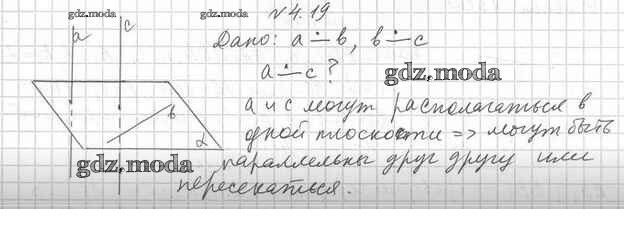 gdz.moda gdz.moda № 4.19
a c
Дано: a ∸ в, в ∸ c
a ∸ c ?
gdz.moda
a и c могут располагаться в
одной плоскости => могут быть
в
α
параллельны друг другу или
gdz.moda
пересекаться.